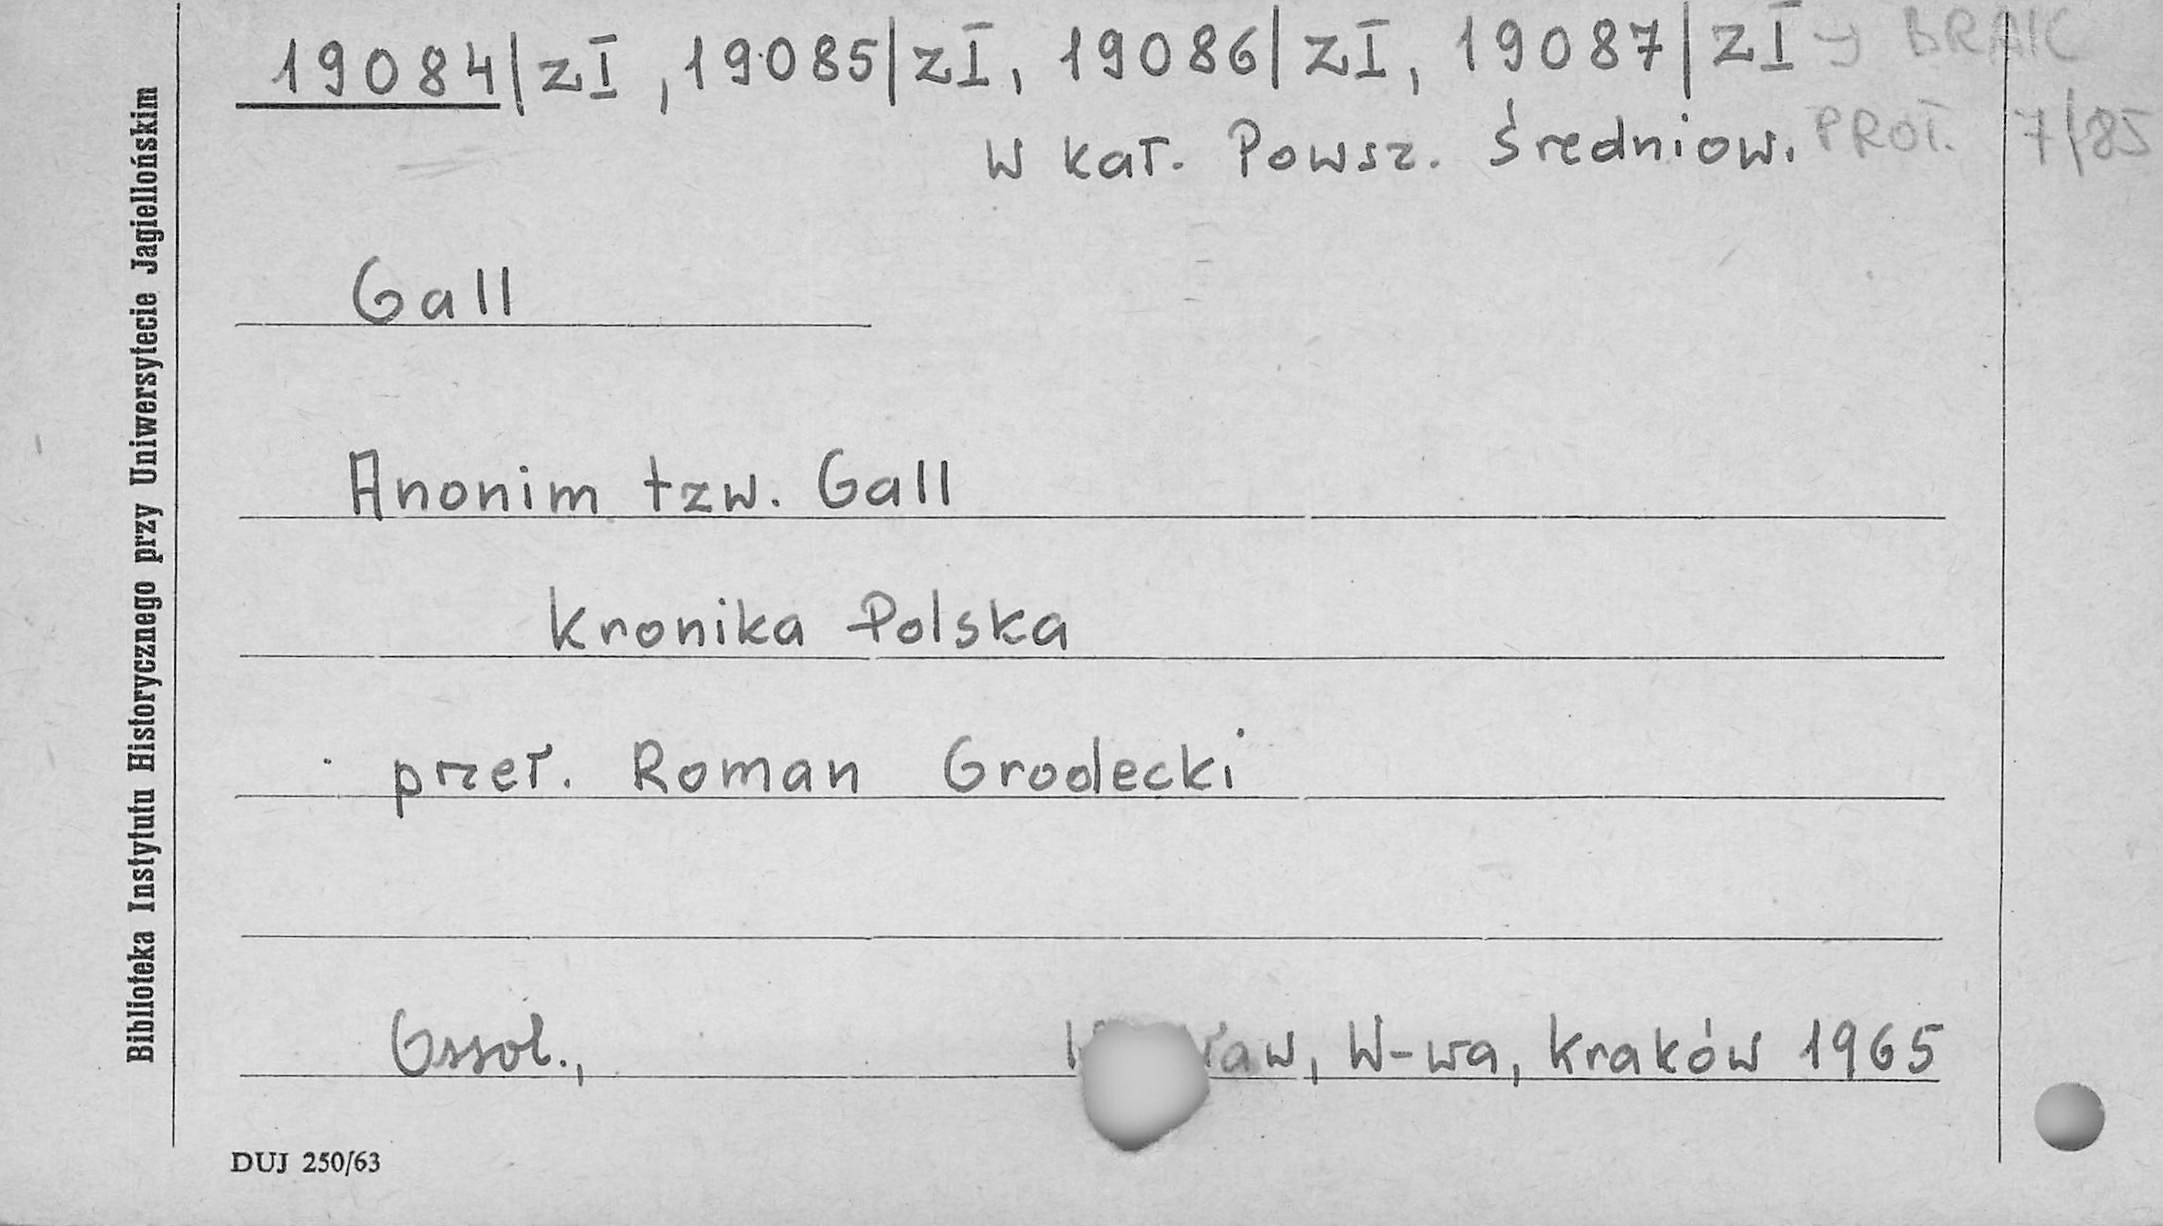 19084/zI, 19085/zI, 19086/zI, 19087/zI → BRAK
w kat. Powsz. Średniow. PROT. 7/85
Gall
Anonim tzw. Gall
Kronika Polska
przeł. Roman Grodecki
Ossol., W-wa, Kraków 1965
DUJ 250/63
Biblioteka Instytutu Historycznego przy Uniwersytecie Jagiellońskim